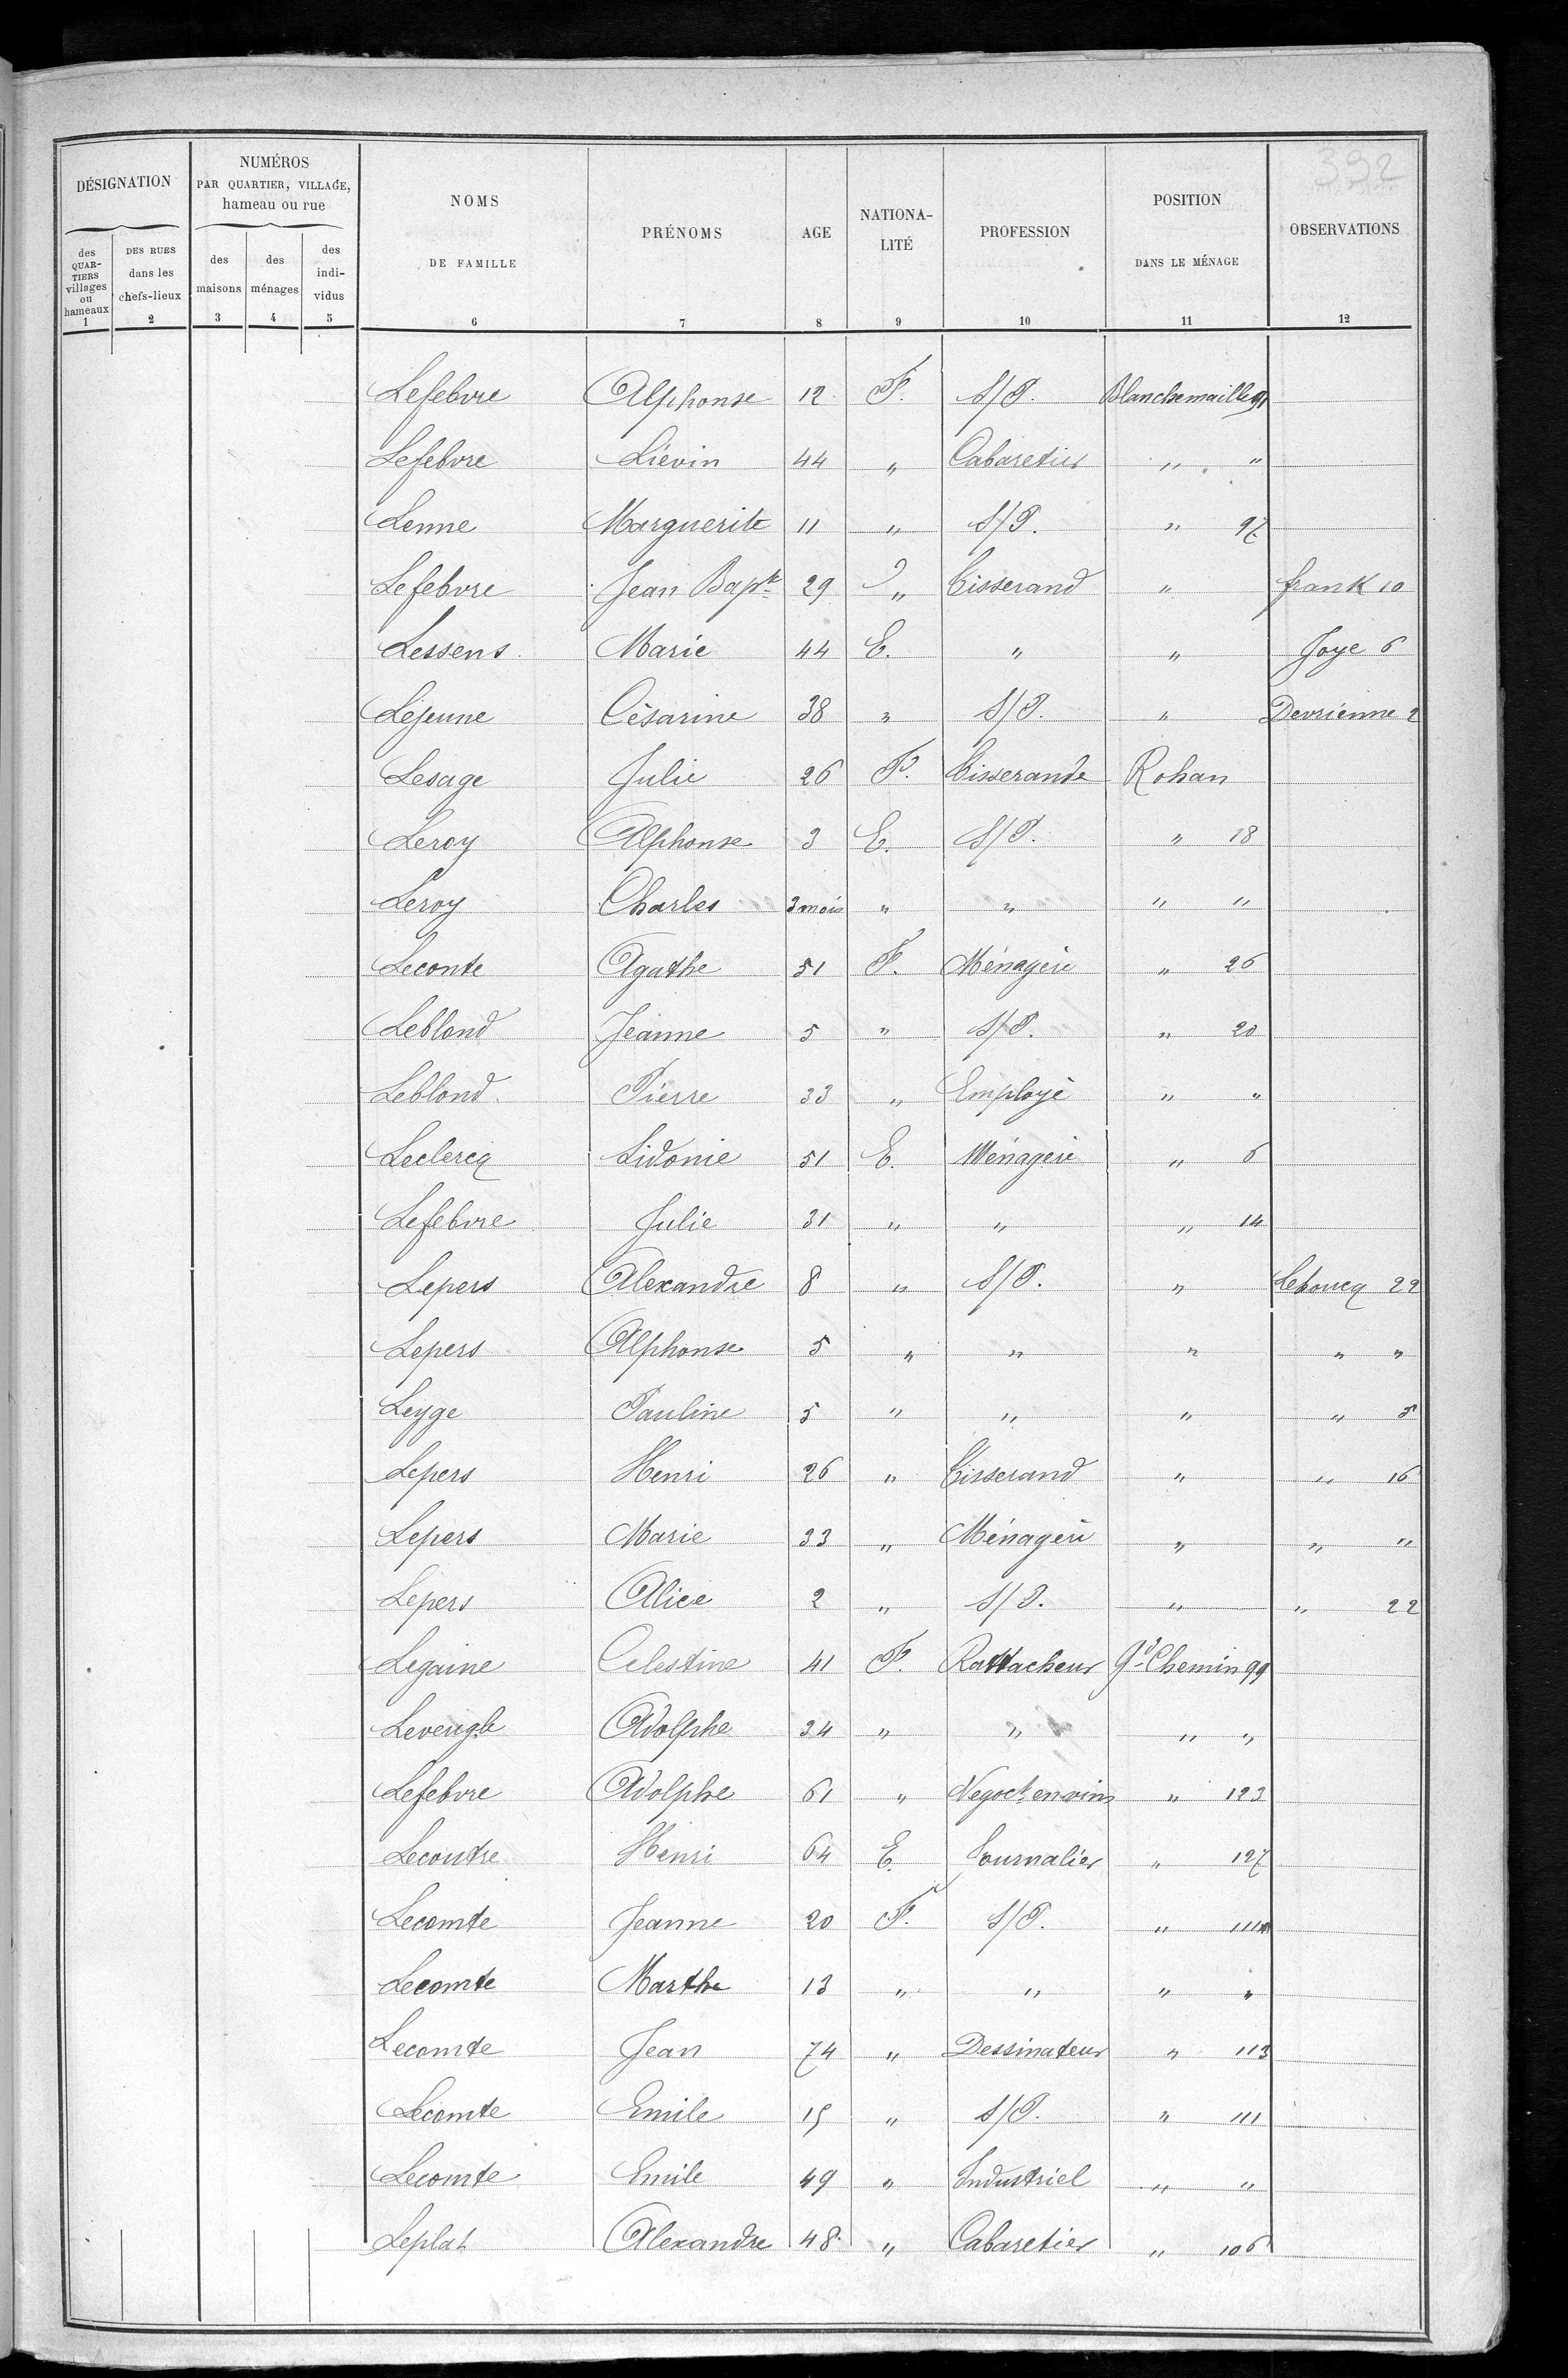 392
DÉSIGNATION
NUMÉROS
PAR QUARTIER, VILLAGE,
hameau ou rue
NOMS
DE FAMILLE
PRÉNOMS
AGE
NATIONA-
LITÉ
PROFESSION
POSITION
DANS LE MÉNAGE
OBSERVATIONS
des
QUAR-
TIERS
villages
ou
hameaux
DES RUES
dans les
chefs-lieux
des
maisons
des
ménages
des
indi-
vidus
1 2 3 4 5 6 7 8 9 10 11 12
Lefebvre Alphonse 12 F. S/P. Blanchemaille 91
Lefebvre Liévin 44 " Cabaretier " "
Lenne Marguerite 11 " S/P. " 97
Lefebvre Jean Bapte 29 " Tisserand " frank 10
Lessens Marie 44 E. " " Joye 6
Lejeune Césarine 38 " S/P. " Devrienne 2
Lesage Julie 26 F. Tisserande Rohan
Leroy Alphonse 3 E. S/P. " 18
Leroy Charles 3 mois " " " "
Leconte Agathe 51 F. Ménagère " 26
Leblond Jeanne 5 " S/P. " 20
Leblond Pierre 33 " Employé " "
Leclercq Sidonie 51 E. Ménagère " 6
Lefebvre Julie 31 " " " 14
Lepers Alexandre 8 " S/P. " Leboucq 22
Lepers Alphonse 5 " " " " "
Leyge Pauline 5 " " " " 5
Lepers Henri 26 " Tisserand " " 16
Lepers Marie 33 " Ménagère " " "
Lepers Alice 2 " S/P. " " 22
Legaine Celestine 41 F. Rattacheur Gd Chemin 99
Leveugle Adolphe 34 " " " "
Lefebvre Adolphe 61 " Negoct en vins " 123
Lecoutre Henri 64 E. Journalier " 127
Lecomte Jeanne 20 F. S/P. "
Lecomte Marthe 13 " " " "
Lecomte Jean 74 " Dessinateur " 113
Lecomte Emile 15 " S/P. " 111
Lecomte Emile 49 " Industriel " "
Leplat Alexandre 48 " Cabaretier " 106